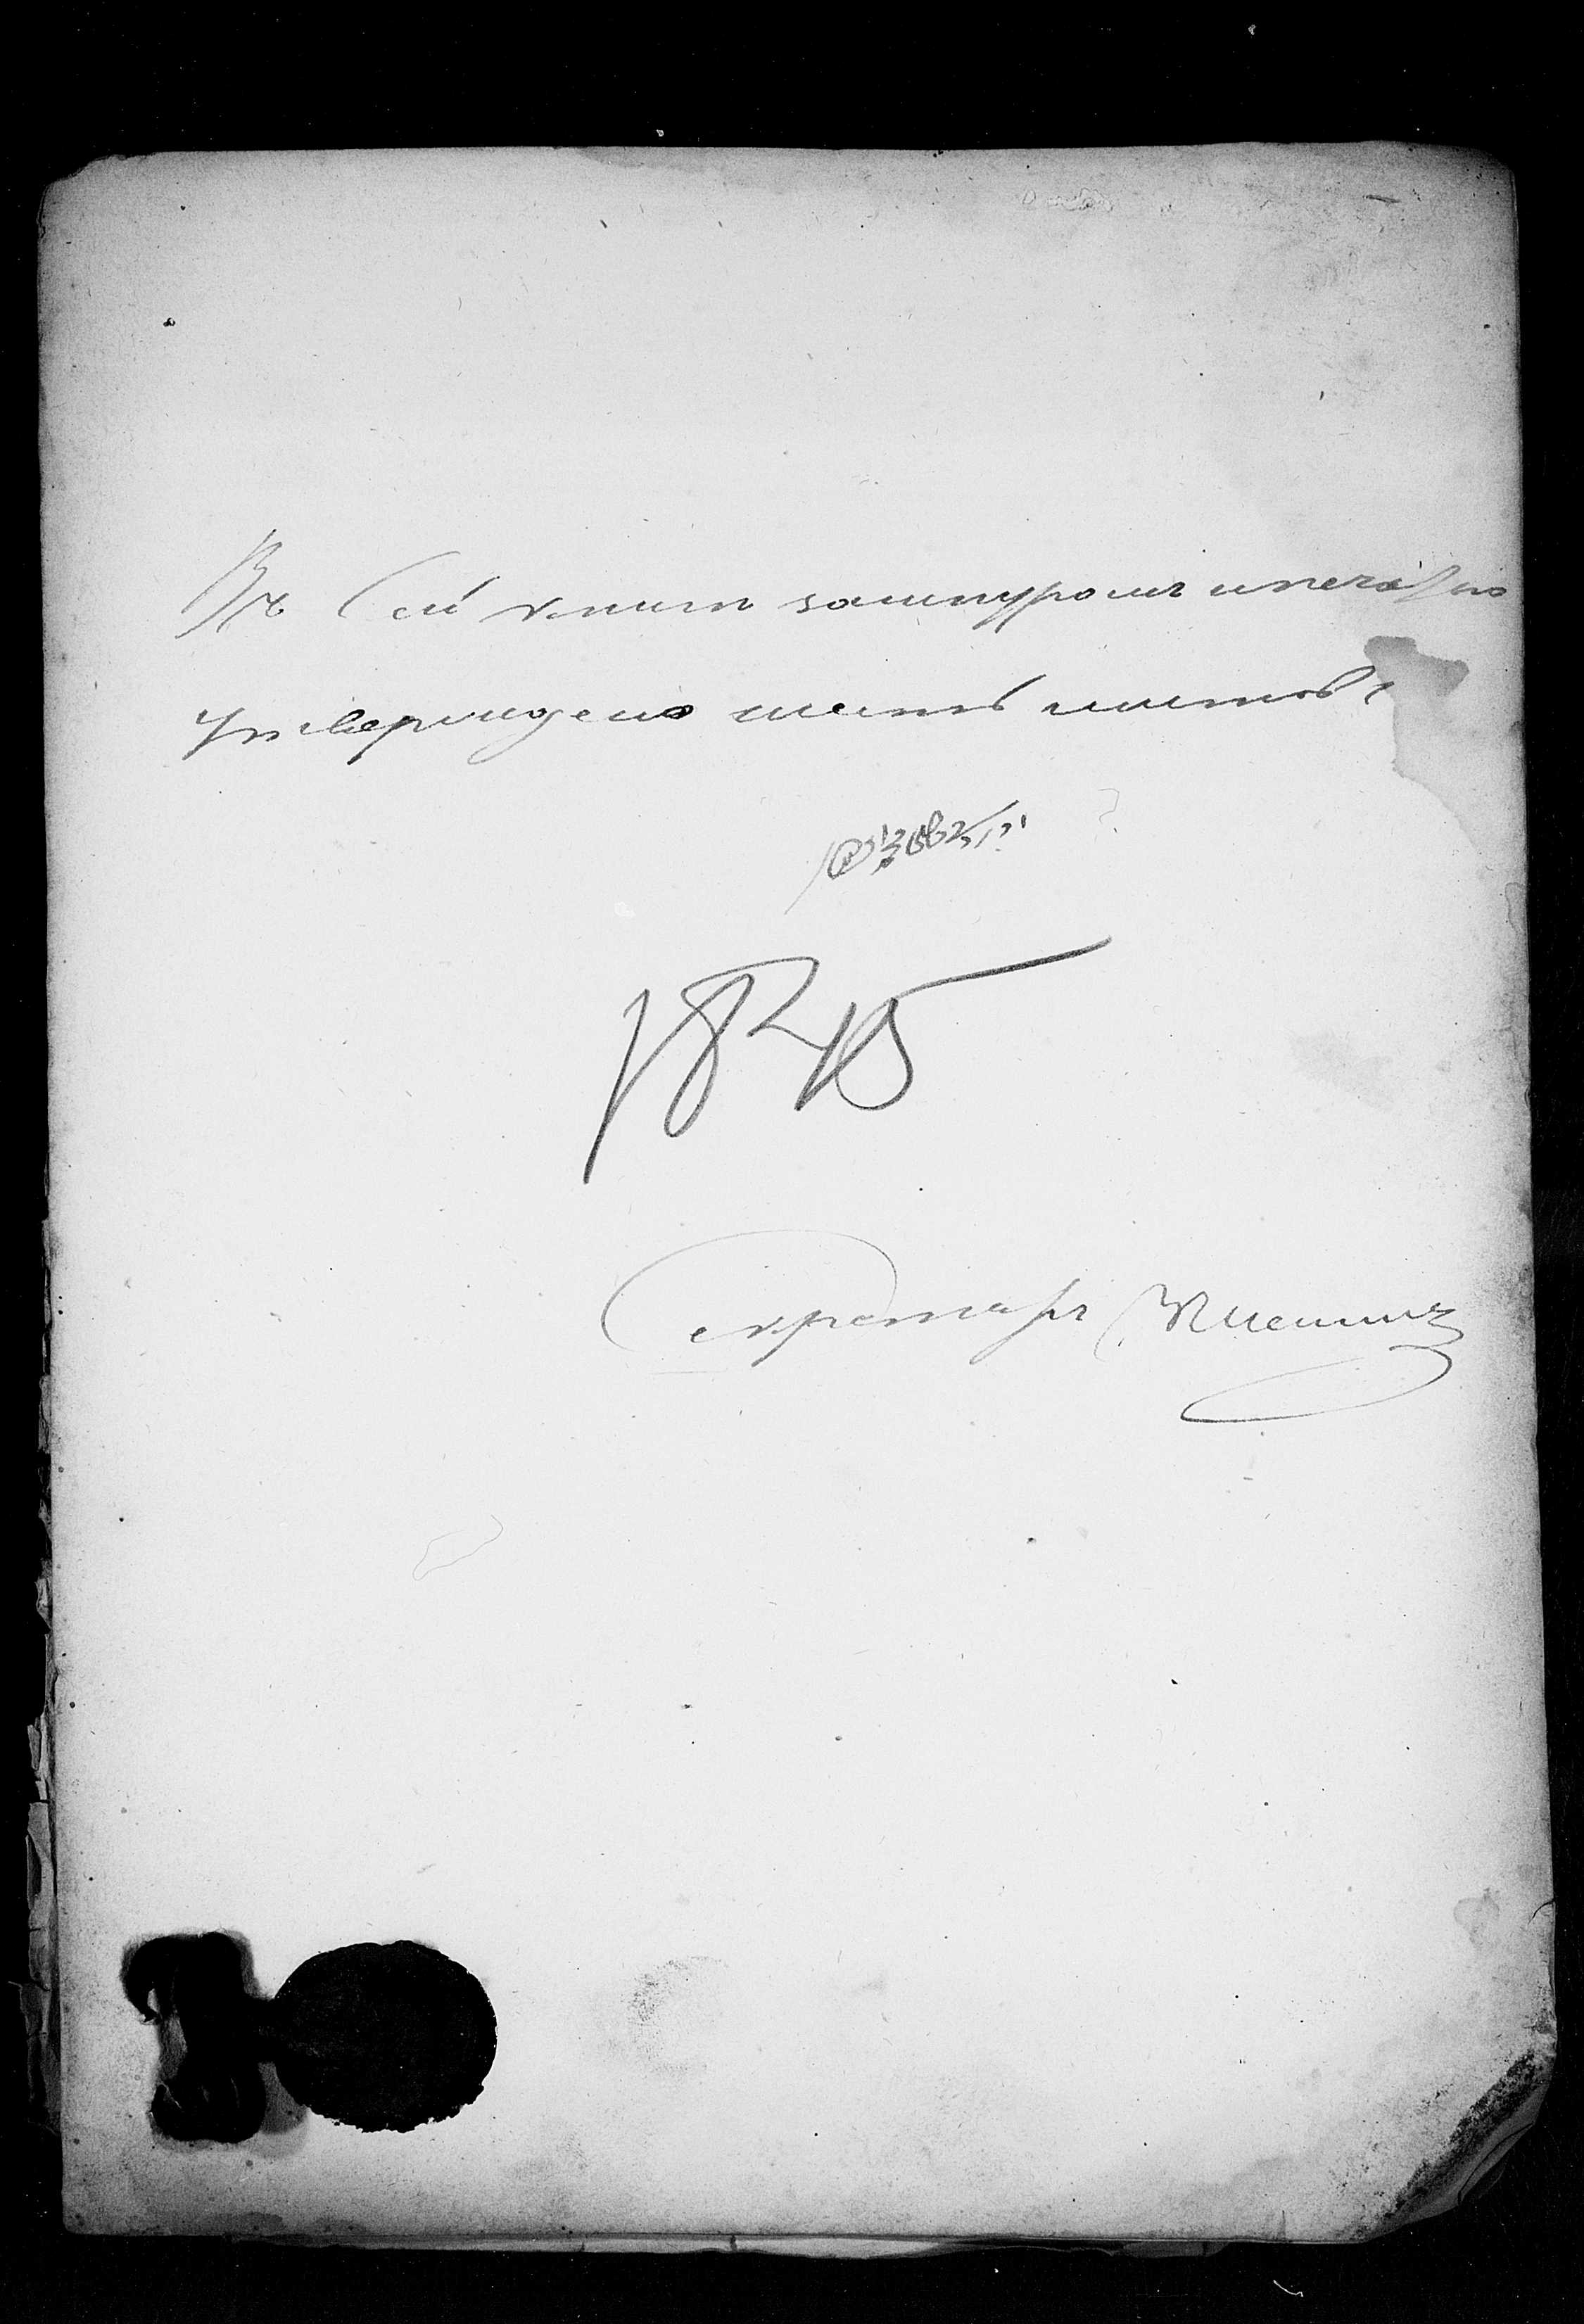 Въ Сей книгѣ зашнуромъ и печатью
утверждено шесть листовъ
1845
Секретарь